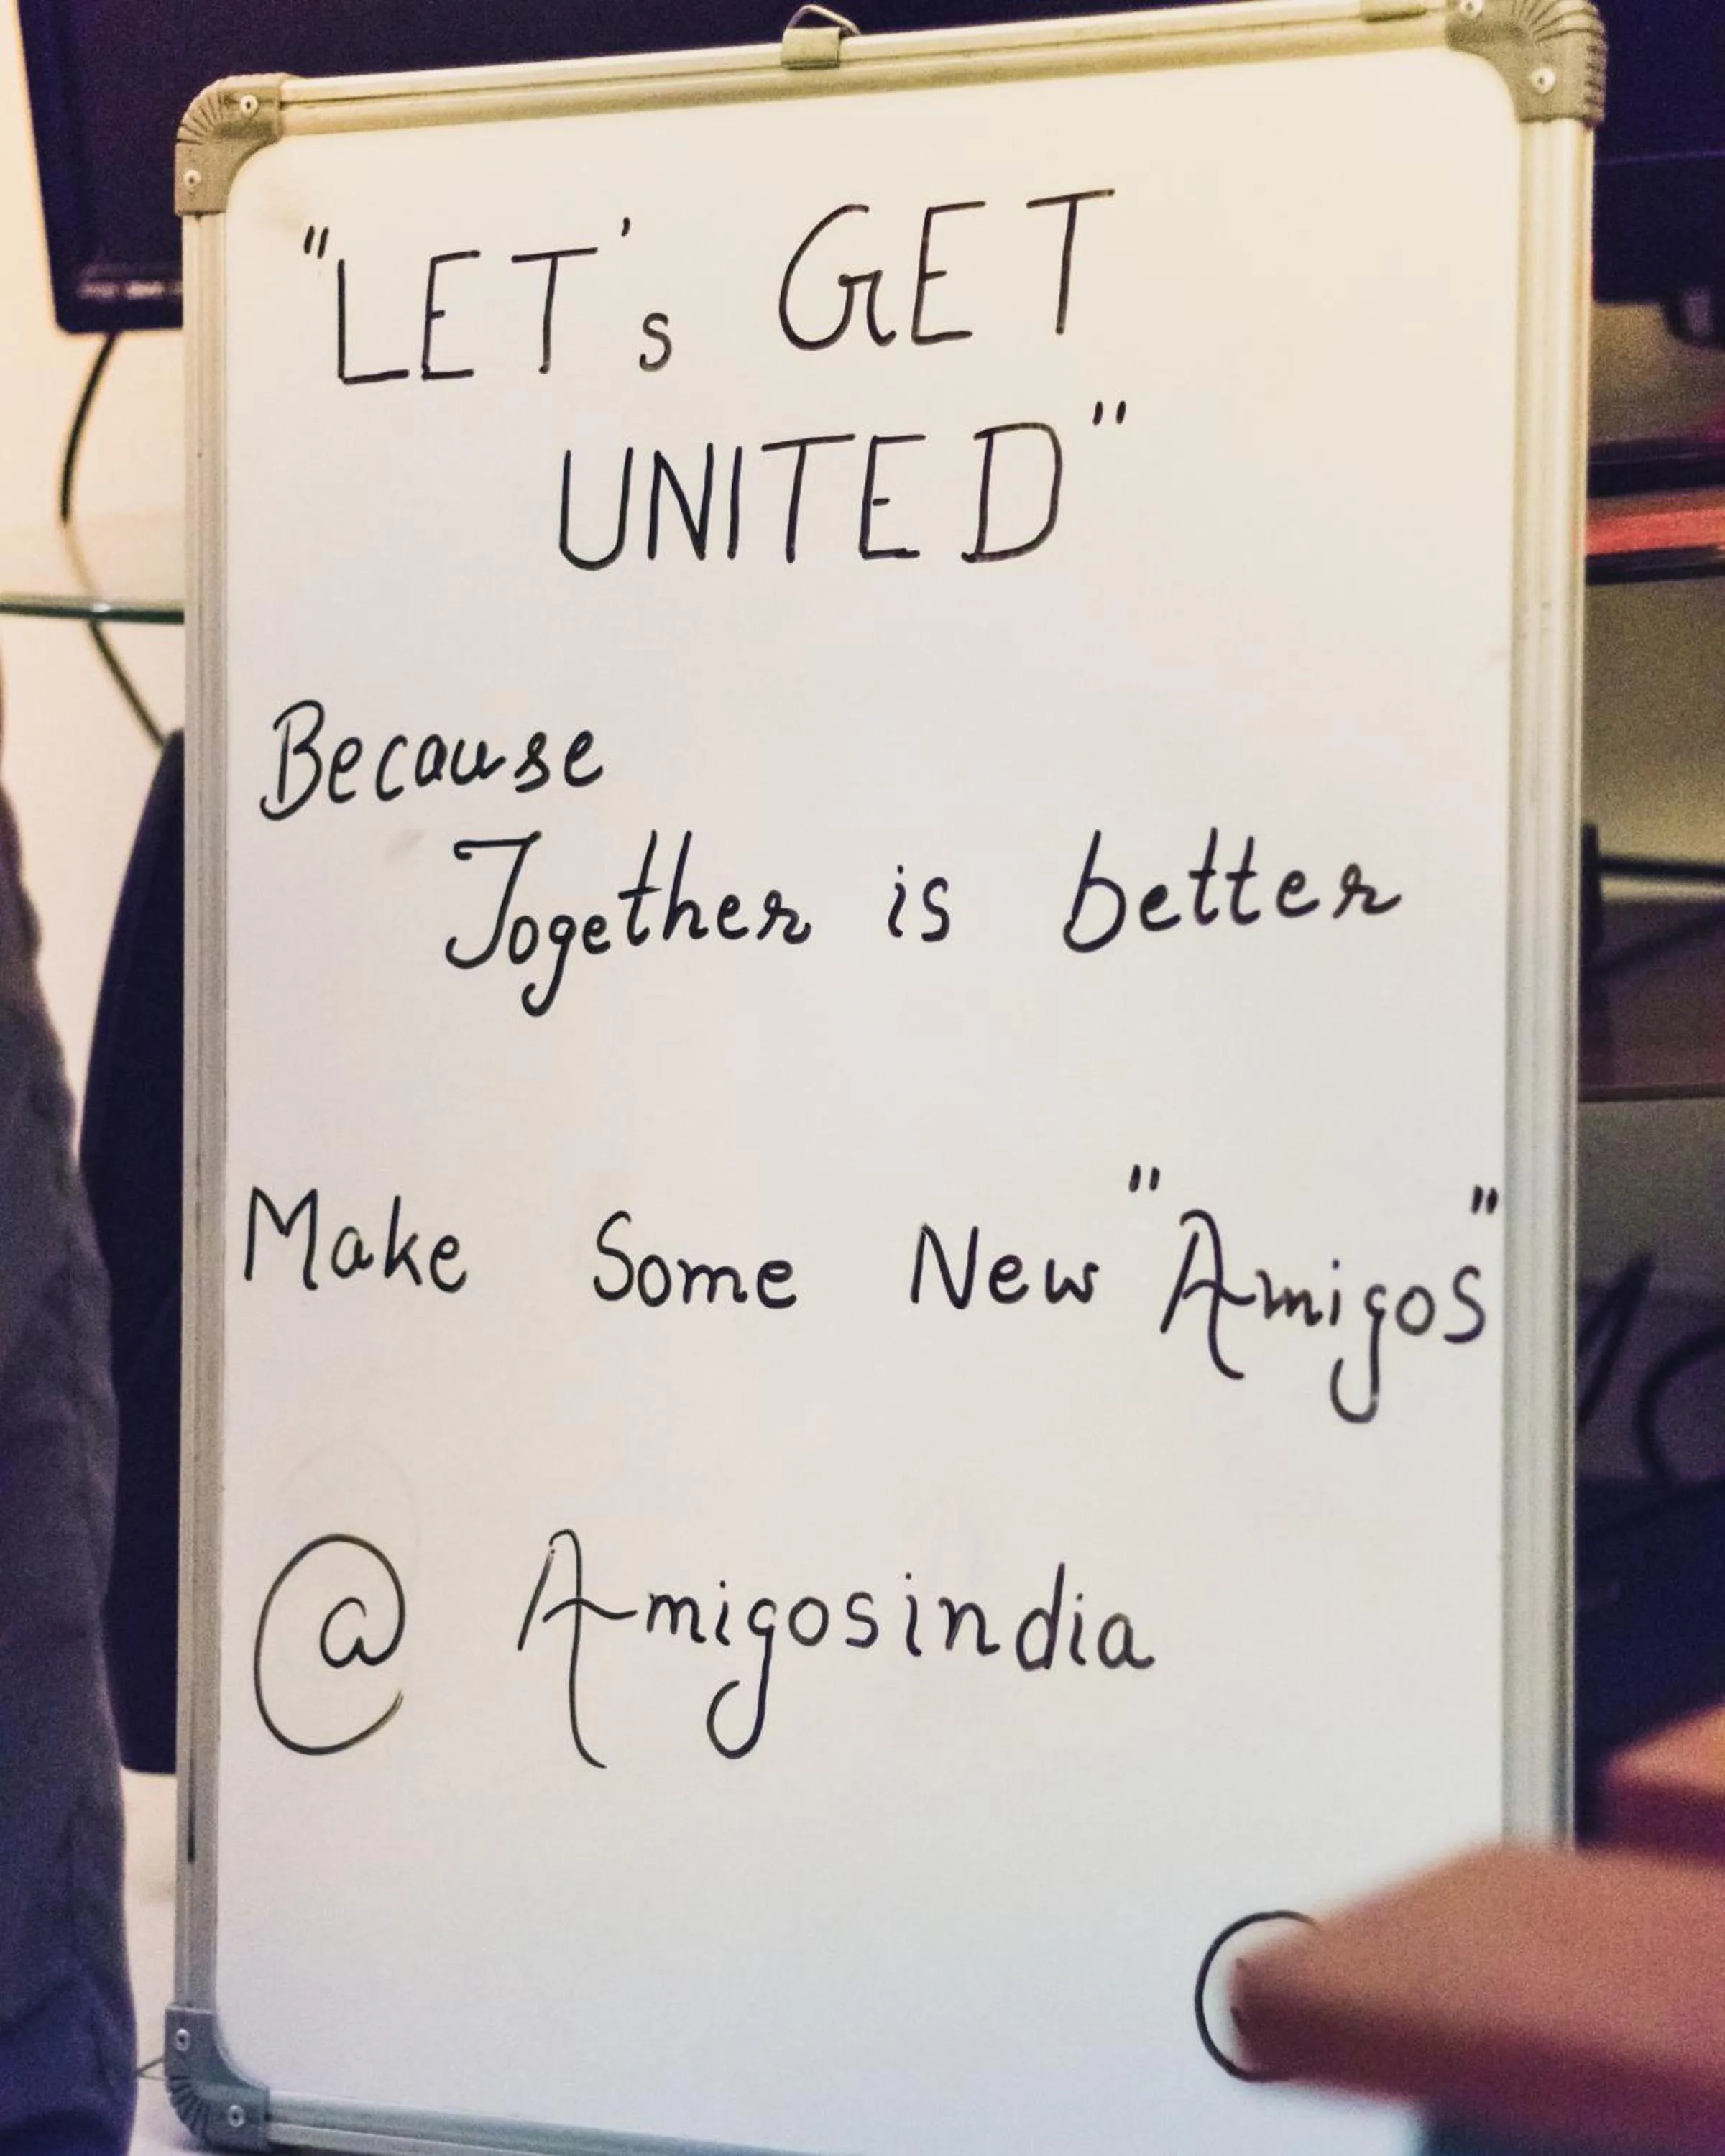 "LET's GET
UNITED"
Because
Together is better
Make Some New "Amigos"
@ Amigosindia